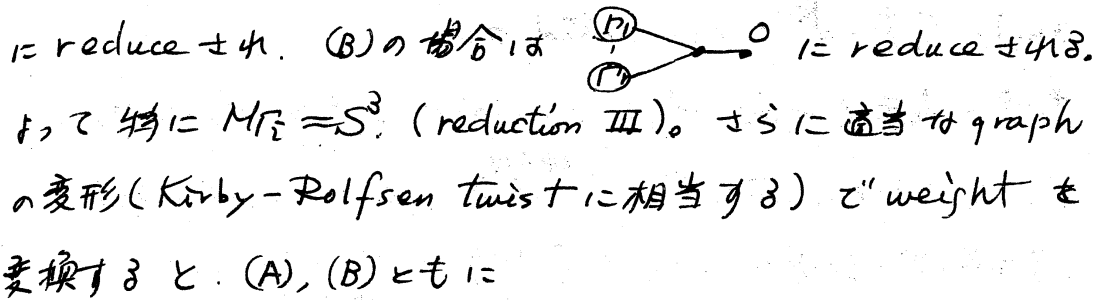 に reduce され. (B)の場合は Γ₁ Γ₁ 0 に reduce される.
よって 特に MΓᵢ = S³. (reduction III)。さらに適当な graph
の変形(Kirby-Rolfsen twistに相当する)で weight を
変換すると. (A), (B)ともに